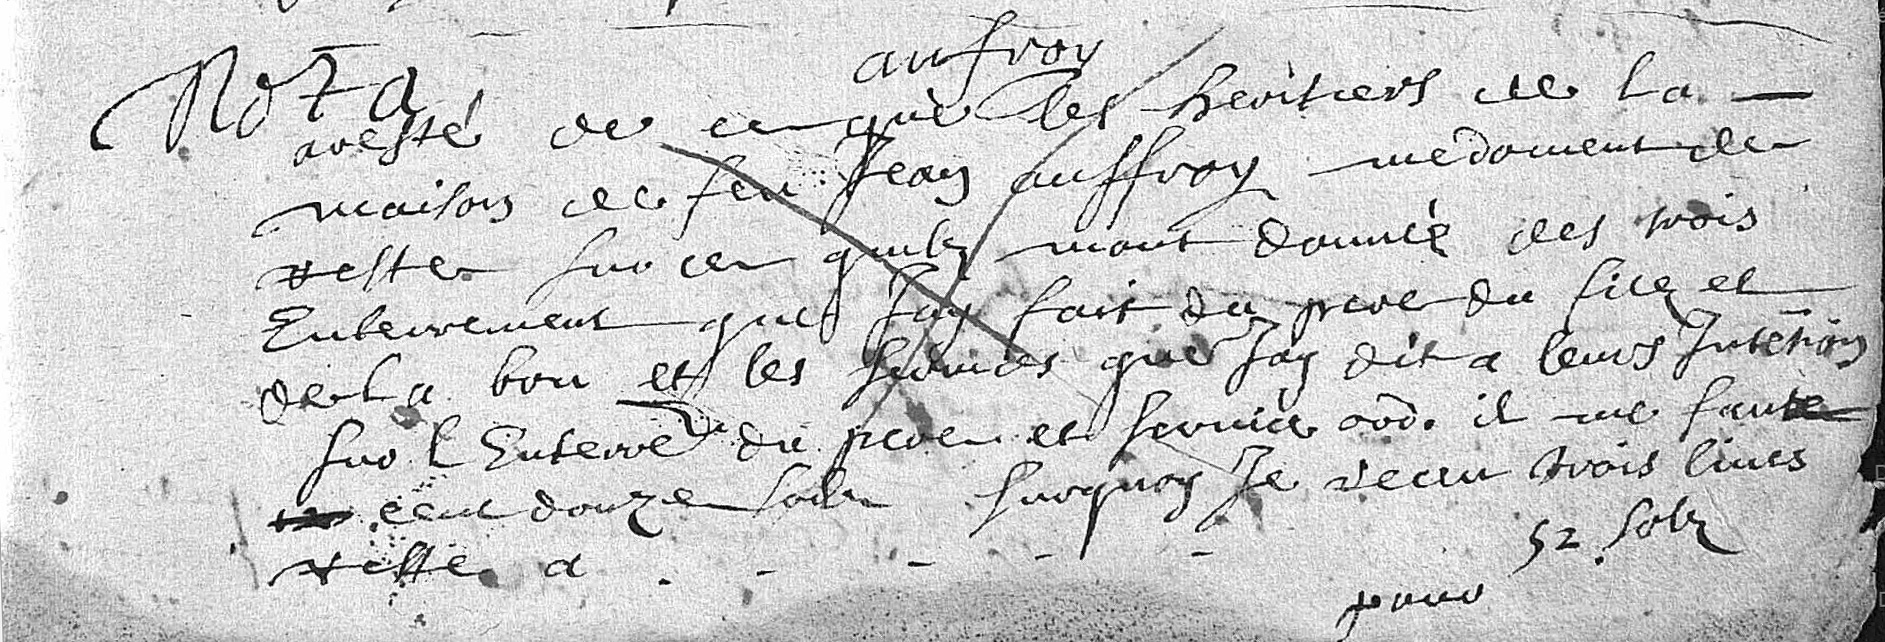 Nota aufroy
aresté de ce que les heritiers de la
maison de feu Jean auffroy me doivent de
reste sur ce quils mont donné des trois
Enterrement que Jay fait du pere du filz et
de la bru et les services que Jay dit a leurs Intention
sur l Enterre du pere et service ord. il me faut
cent douze solz surquoy Je receu trois liures
reste a - - - - - 52 solz
pour